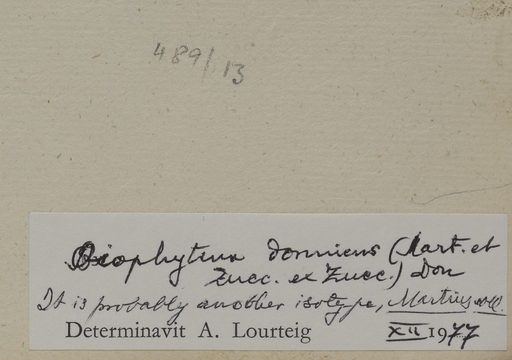 489/13
Biophytum dormiens (Mart. et
Zucc. ex Zucc.) Don
It is probably another isotype, Martius
Determinavit A. Lourteig XII 1977